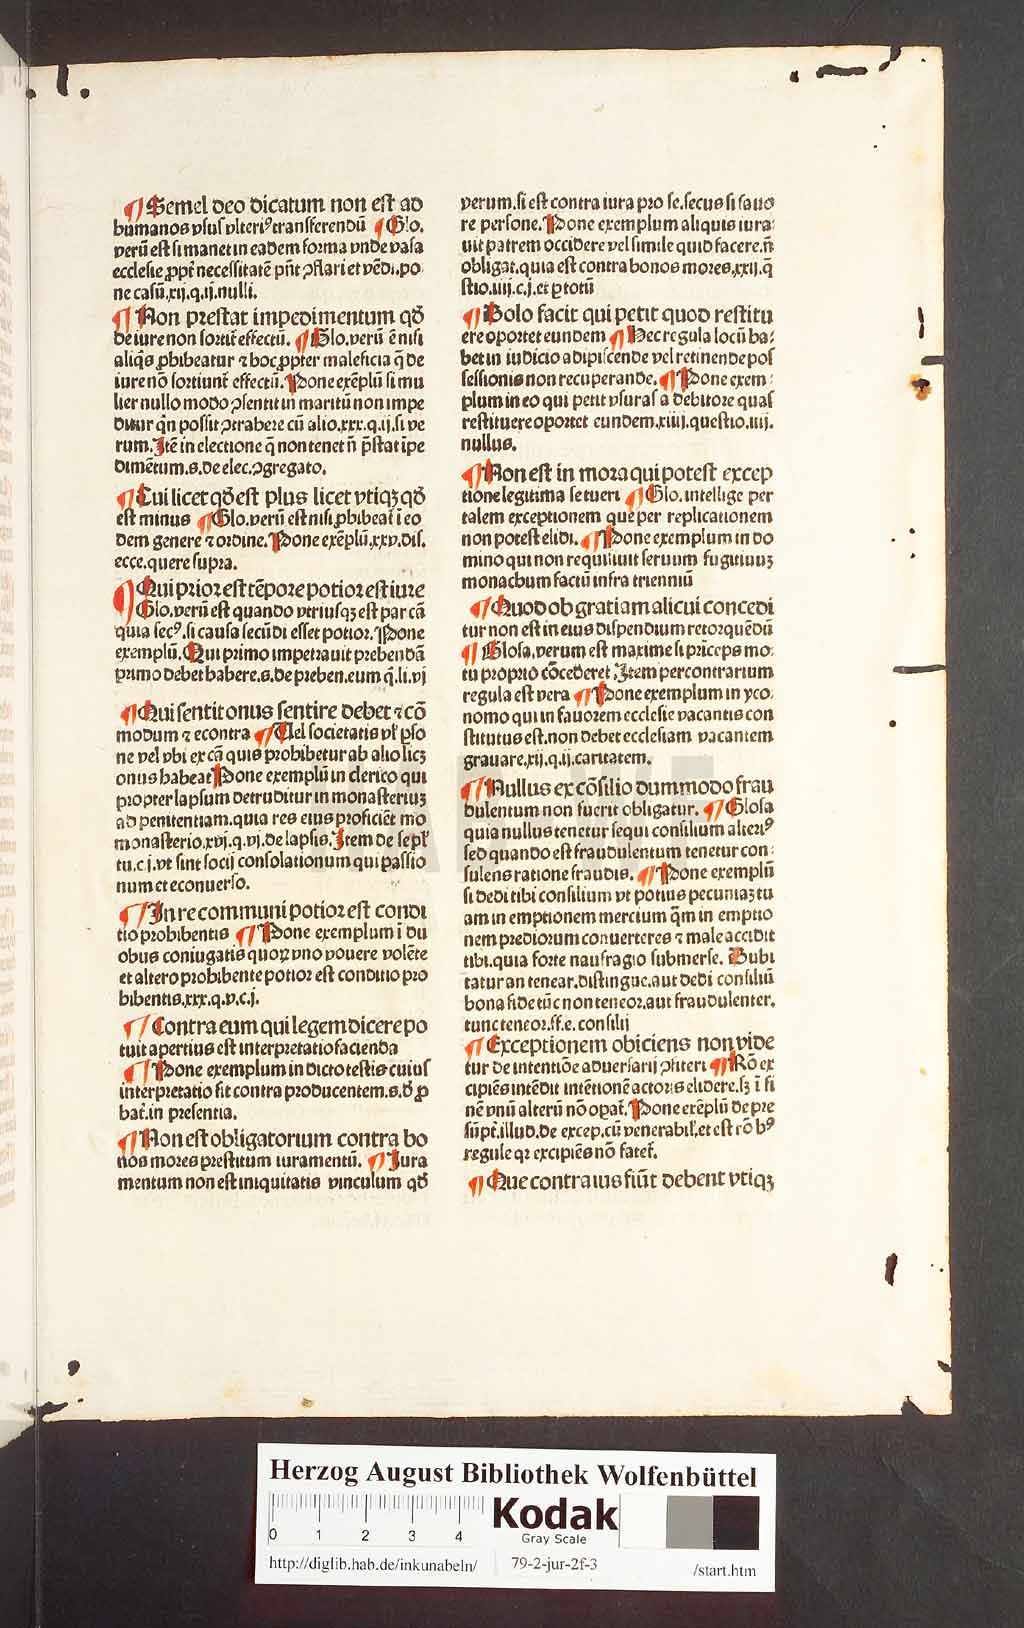 ¶ Semel deo dicatum non est ad
humanos vsus vlteri⁹ transferendū ¶ Glo.
verū est si manet in eadem forma vnde vasa
ecclesie ꝓpt̄ necessitatē pn̄t ↄflari et vēdi.po
ne casū.xij.q.ij.nulli.
¶ Non prestat impedimentum qđ
de iure non sortit̄ effectū. ¶ Glo.verū ē nisi
aliq̄s ꝓhibeatur ⁊ hoc ꝓpter maleficia q̄ de
iure nō sortiunt̄ effectū. Pone exēplū si mu
lier nullo modo ↄsentit in maritū non impe
ditur q̄n possit ↄtrahere cū alio.xxx.q.ij.si ve
rum. Itē in electione q̄ non tenet n̄ p̄stat īpe
dimētum.s.de elec.ↄgregato.
¶ Cui licet qđ est plus licet vtiqꝫ qđ
est minus ¶ Glo.verū est nisi ꝓhibeat̄ ī eo
dem genere ⁊ ordine. Pone exēplū.xxv.dis.
ecce.quere supra.
¶ Qui prior est tēpore potior est iure
Glo.verū est quando vtriusqꝫ est par cā
quia sec⁹.si causa secūdi esset potior. Pone
exemplū. Qui primo impetrauit prebendā
primo debet habere.s.de preben.eum q̄.li.vj
¶ Qui sentit onus sentire debet ⁊ cō
modum ⁊ econtra ¶ Uel societatis vl̓ pso
ne vel vbi ex cā quis prohibetur ab alio licꝫ
onus habeat Pone exemplū in clerico qui
propter lapsum detruditur in monasteriuꝫ
ad penitentiam.quia res eius proficiēt mo
monasterio.xvj.q.vj.de lapsis. Item de sepl̓
tu.c.j.vt sint socij consolationum qui passio
num et econuerso.
¶ In re communi potior est condi
tio prohibentis ¶ Pone exemplum ī du
obus coniugatis quoꝝ vno vouere volēte
et altero prohibente potior est conditio pro
hibentis.xxx.q.v.c.j.
¶ Contra eum qui legem dicere po
tuit apertius est interpretatio facienda
¶ Pone exemplum in dicto testis cuius
interpretatio fit contra producentem.s.đ ꝓ
bat̄.in presentia.
¶ Non est obligatorium contra bo
nos mores prestitum iuramentū. ¶ Iura
mentum non est iniquitatis vinculum qđ
verum.si est contra iura pro se.secus si fauo
re persone. Pone exemplum aliquis iura:
uit patrem occidere vel simile quid facere.n̄
obligat.quia est contra bonos mores.xxij.q̄
stio.iiij.c.j.et ꝑ totū
¶ Dolo facit qui petit quod restitu
ere oportet eundem ¶ Hec regula locū ha:
bet in iudicio adipiscende vel retinende pos
sessionis non recuperande. ¶ Pone exem:
plum in eo qui petit vsuras a debitore quas
restituere oportet eundem.xiiij.questio.iiij.
nullus.
¶ Non est in mora qui potest excep
tione legitima se tueri ¶ Glo.intellige per
talem exceptionem que per replicationem
non potest elidi. ¶ Pone exemplum in do
mino qui non requisiuit seruum fugitiuuꝫ
monachum factū infra trienniū
¶ Quod ob gratiam alicui concedi
tur non est in eius dispendium retorquēdū
¶ Glosa.verum est maxime si prīceps mo:
tu proprio cōcederet. Item per contrarium
regula est vera ¶ Pone exemplum in yco:
nomo qui in fauorem ecclesie vacantis con
stitutus est.non debet ecclesiam vacantem
grauare.xij.q.ij.caritatem.
¶ Nullus ex cōsilio dummodo frau
dulentum non fuerit obligatur. ¶ Glosa
quia nullus tenetur sequi consilium alteri⁹
sed quando est fraudulentum tenetur con:
sulens ratione fraudis. ¶ Pone exemplū
si dedi tibi consilium vt potius pecuniaꝫ tu
am in emptionem mercium q̄m in emptio
nem prediorum conuerteres ⁊ male accidit
tibi.quia forte naufragio submerse. Dubi
tatur an tenear.distingue.aut dedi consiliū
bona fide tūc non teneor.aut fraudulenter.
tunc teneor.ff.e.consilij
¶ Exceptionem obiciens non vide
tur de intentiōe aduersarij ↄfiteri ¶ Rō ex
cipiēs intēdit intentionē actoris elidere.sꝫ ī fi
nē vnū alterū nō oꝑat̄. Pone exēplū de pre
sūpt̄.illud.de excep.cū venerabil̓.et est rō h⁹
regule qꝛ excipiēs nō fatet̄.
¶ Que contra ius fiūt debent vtiqꝫ
Herzog August Bibliothek Wolfenbüttel
0 1 2 3 4
Kodak
Gray Scale
http://diglib.hab.de/inkunabeln/ 79-2-jur-2f-3 /start.htm
HAB-WF